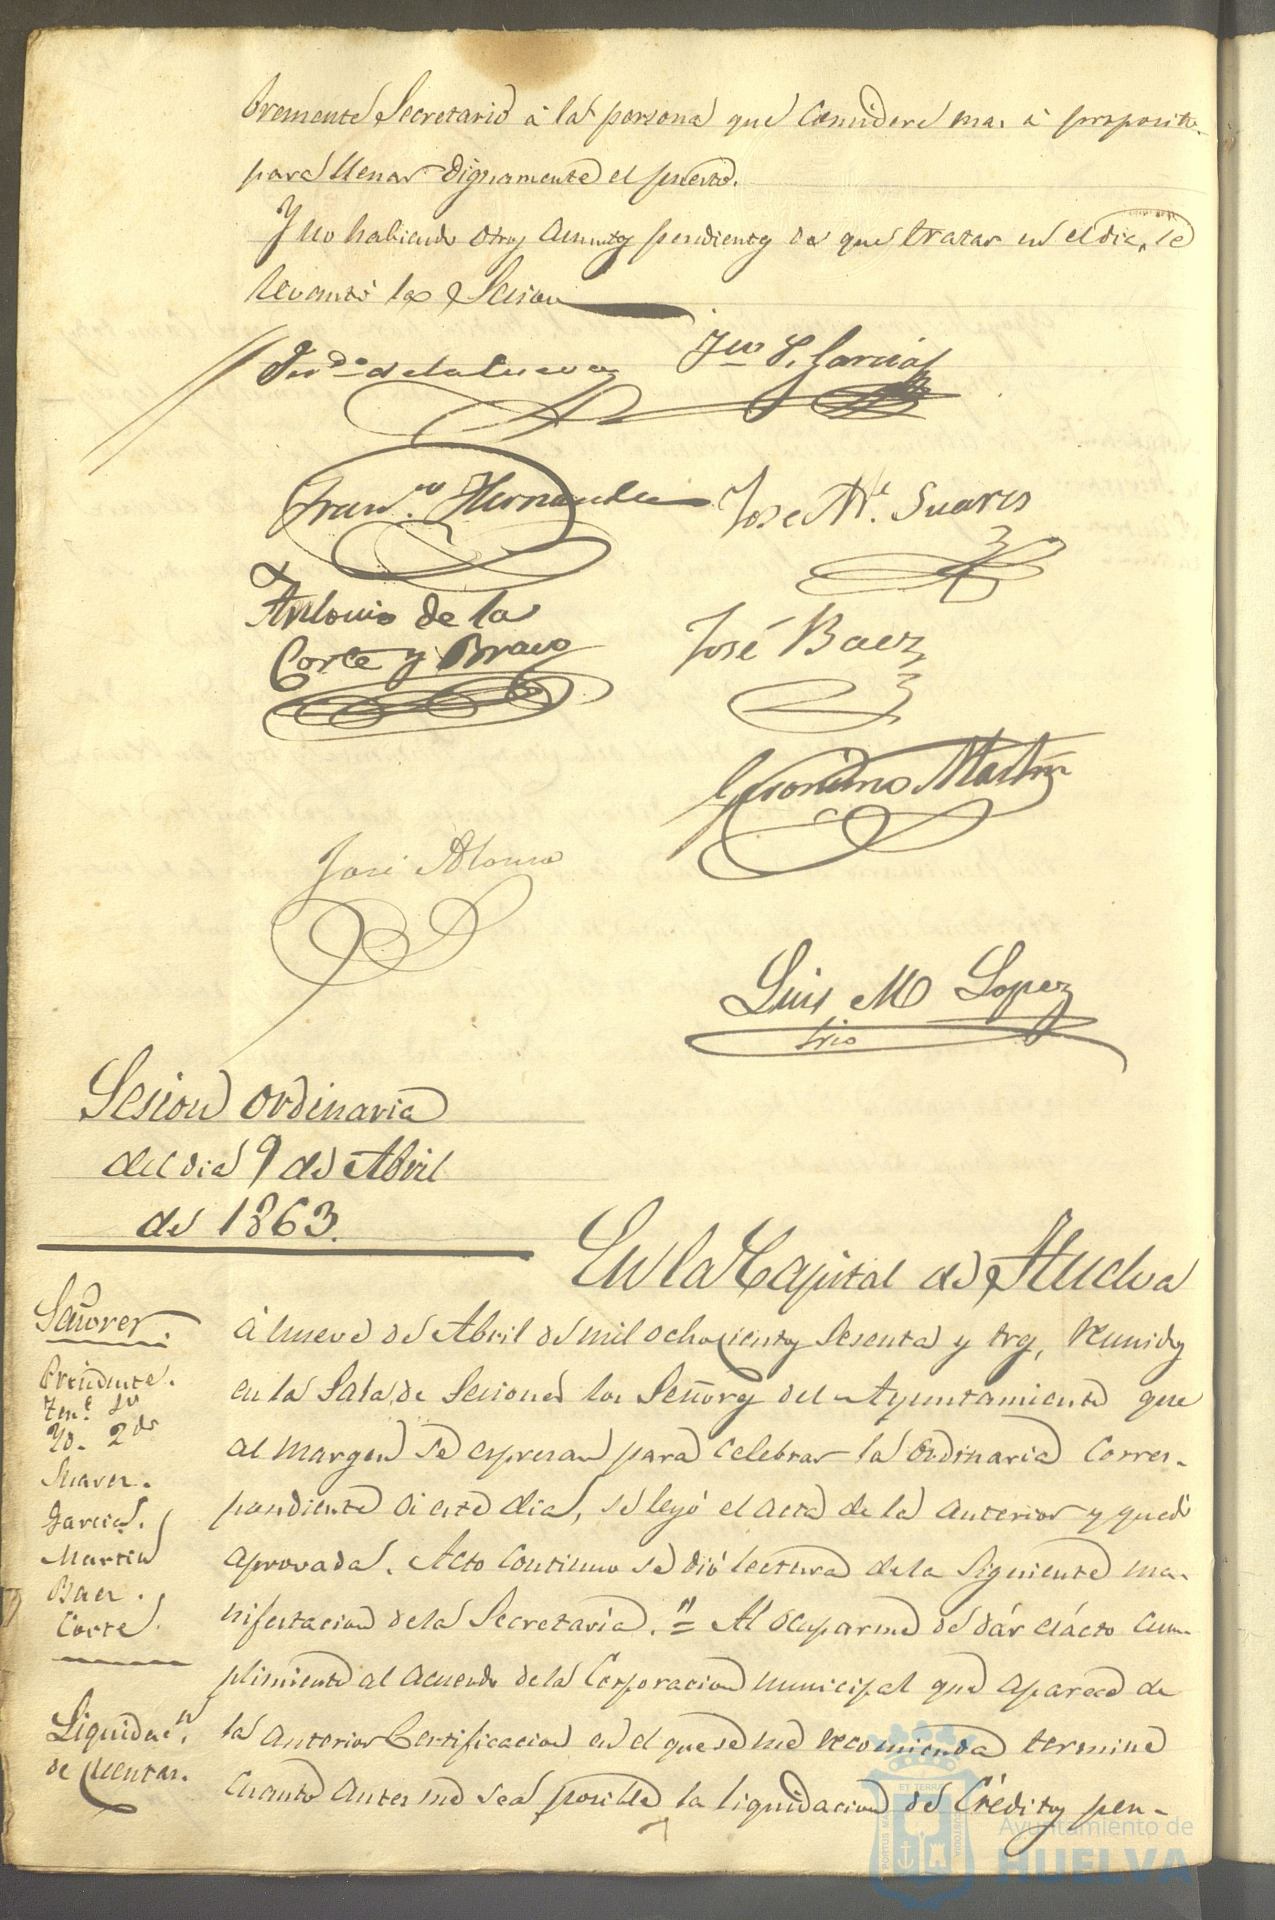 bremente Secretario á la persona que considere mas á proposito
para llenar dignamente el puesto.
Y no habiendo otros asuntos pendientes de que tratar en el dia, se
levantó la Sesion
Fer.do de la Cueva
Jn.o P. Garcia
Fran.co Hernandez
Jose M.a Suarez
Antonio de la
Corte y Bravo
José Baez
Geronimo Martin
José Alonso
Luis M Lopez
Srio
Sesion ordinaria
del dia 9 de Abril
de 1863.
En la Capital de Huelva
á nueve de Abril de mil ochocientos sesenta y tres, reunidos
en la Sala de Sesiones los Señores del Ayuntamiento que
al margen se espresan para celebrar la ordinaria corres-
pondiente á este dia, se leyó el acta de la anterior y quedó
aprovada. Acto continuo se dió lectura de la siguiente ma-
nifestacion de la Secretaria. "= Al ocuparme de dár exácto cum-
plimiento al acuerdo de la Corporacion municipal que aparece de
la anterior Certificacion en el que se me recomienda termine
cuanto antes me sea posible la liquidacion de Créditos pen-
Señores.
Presidente.
Ten.e 1o
Yd. 2do
Suarez.
Garcia.
Martin
Baez.
Corte.
Liquidac.n
de Cuentas.
ET TERRAE
PORTUS MARIS
CUSTODIA
Ayuntamiento de
HUELVA